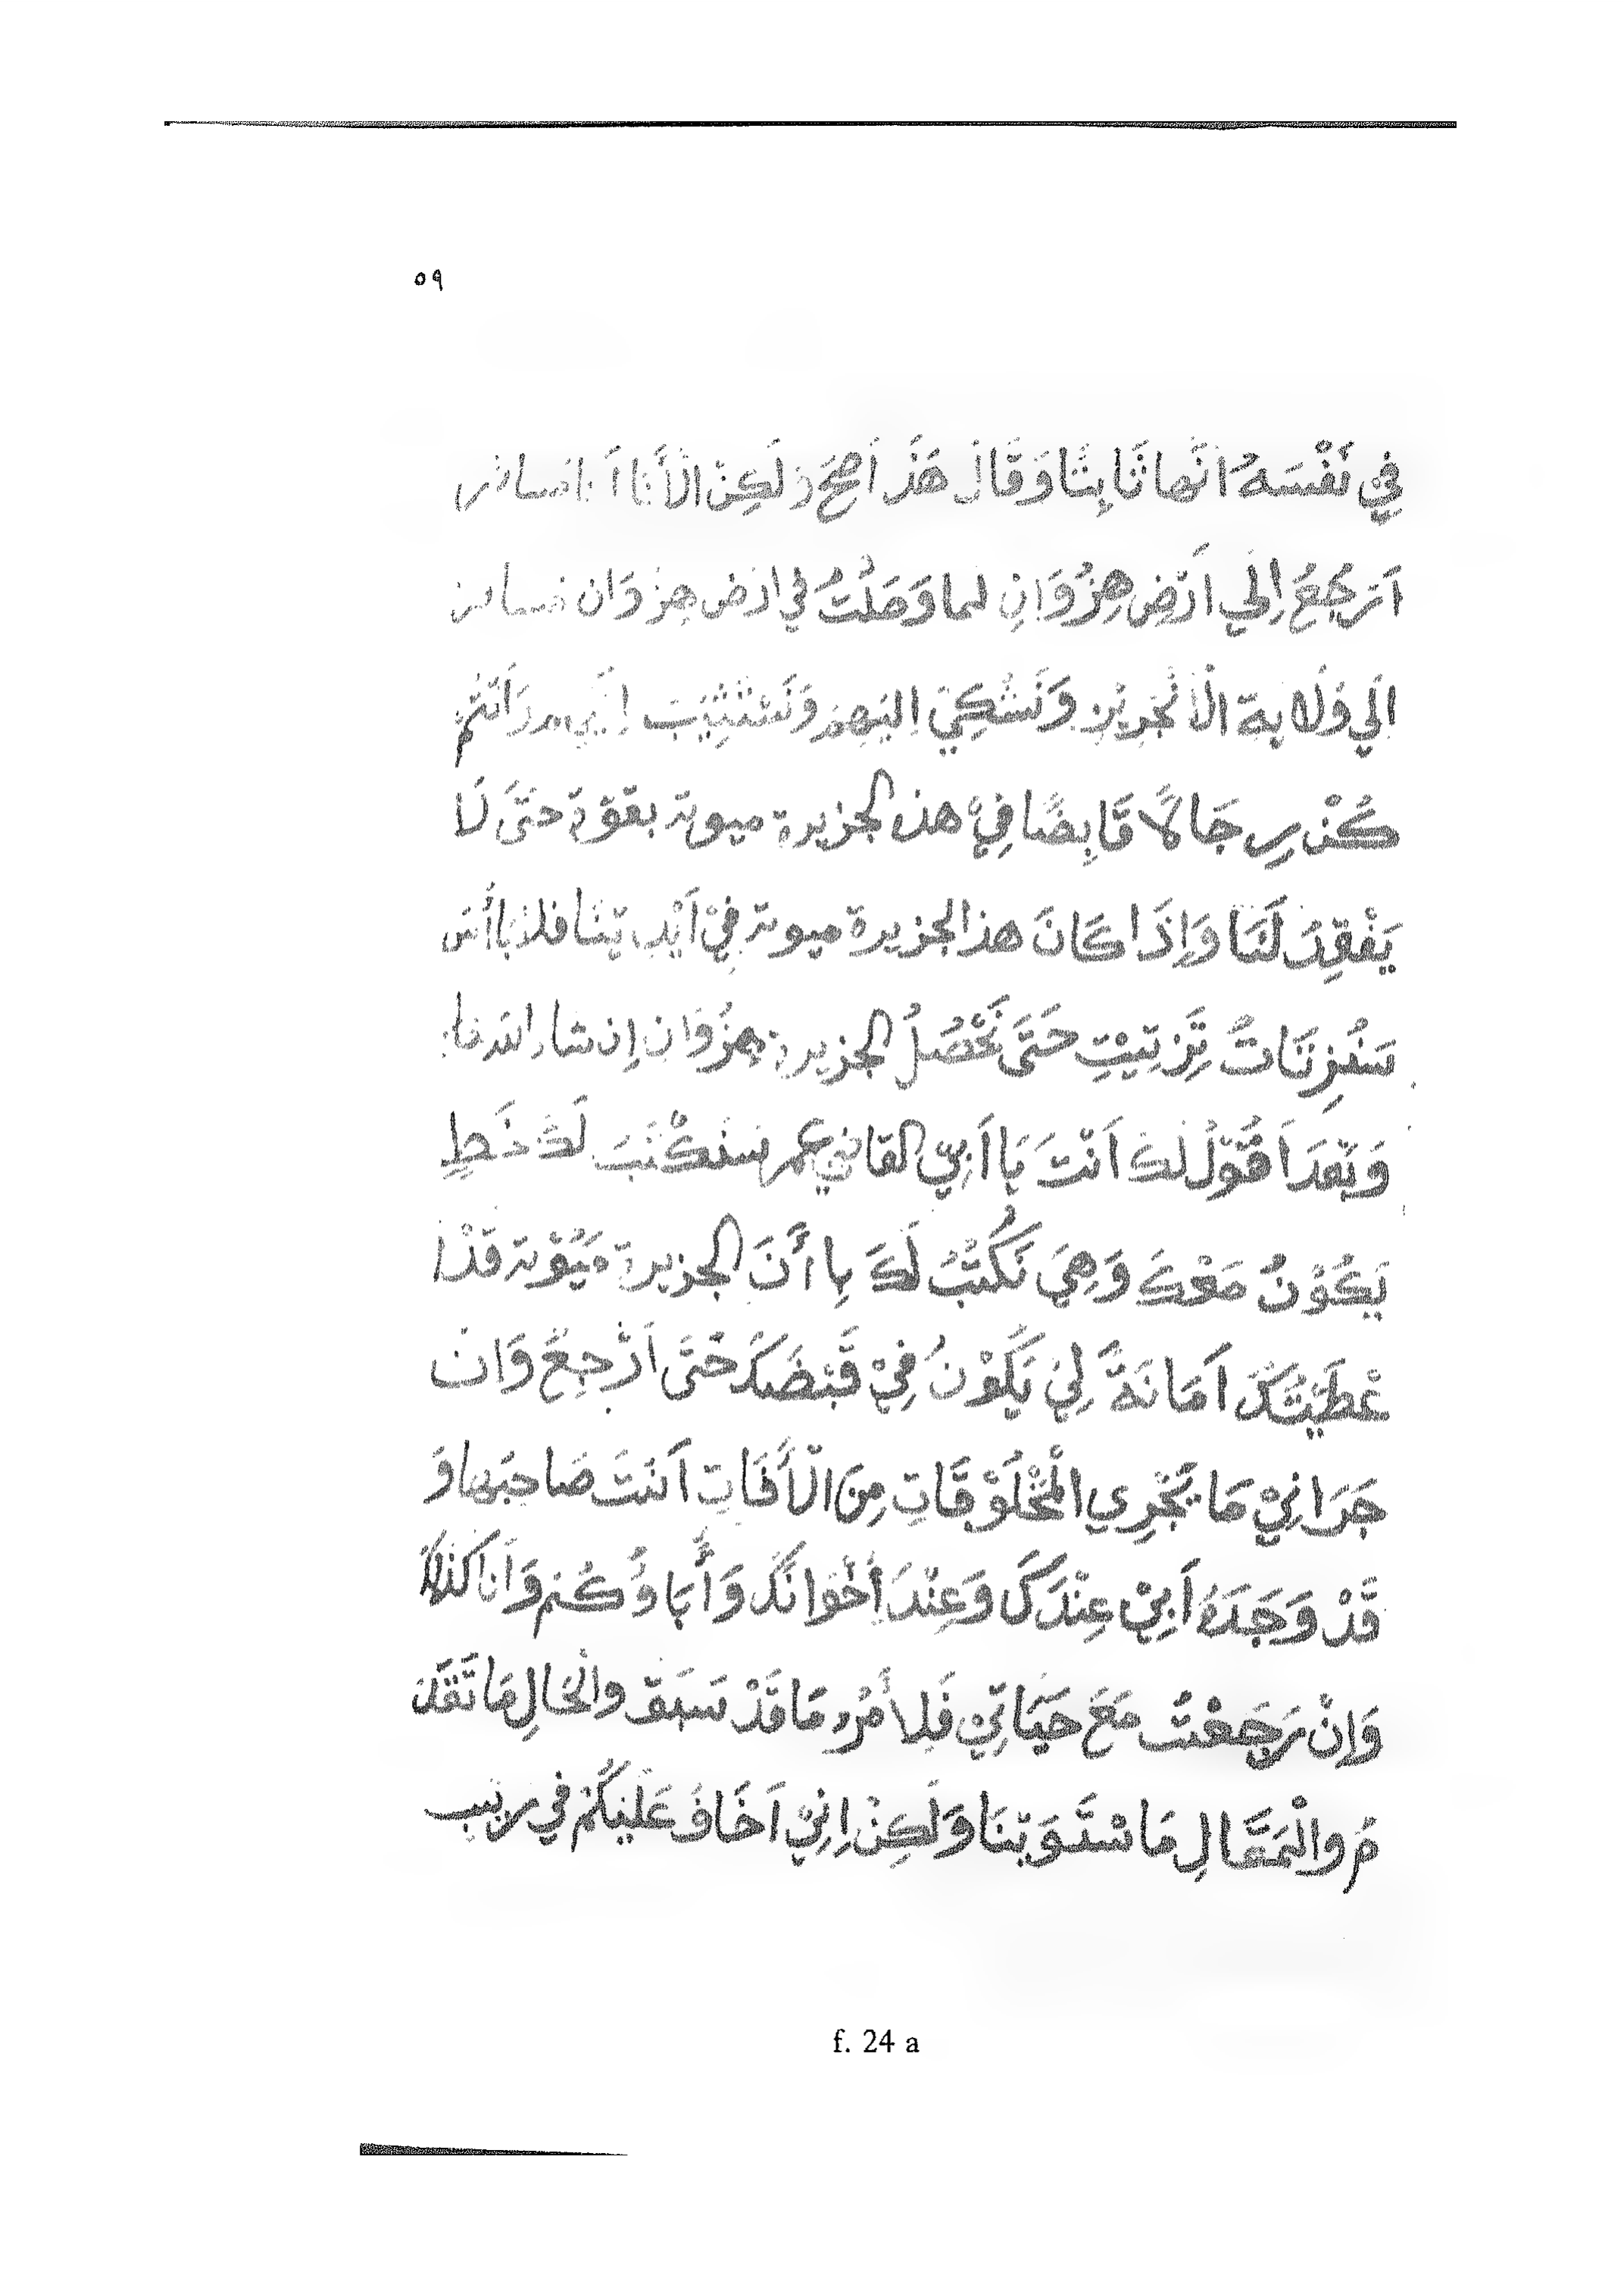 ٥٩
فِيْ نَفْسَهُ انَّها ثَا بِتًا وَقَالَ هَذَ اَصَحَ وَلَكِنْ الْأَنَا اَنَا مسافر
اَرجَعُ اِلَي اَرْضِ هِزُوَانِ لما وَصَلْتُ في ارض هزوَان مسافر
الَي وُلَايةَ الْاَنْجَرِيْزِ وَنَشْكِيَ اِليَهِمْ وَنَسْتَثِيْبَ وَاَنْتُمْ
كُنْ رِجَالًا قَابِضًا فِيْ هذه الجزيرة ميوتة بقوّة حَتَّىَ لَا
يَفْقِدَ لَنَا وَاِذَا كَانَ هذا الجزيرة ميوتة فِيْ اَيْدِيَنَا فلا بَاأس
تَزْتِيْتِ حَتَّىَ نَحْصُلُ الجزيرة هِزُوَان اِن شاء الله
وَبَعَدَ اَقُوْلُ لَكَ اَنْتَ يَا اَبِيْ القاضي عمر سَنكْتَبَ لَكَ خَطِ
يَكُوْنُ مَعْكَ وَهِيَ نَكْتُبُ لَكَ بِا اَنَّ الجزيرة مَيُوْتة قَدْا
عْطَيْتُكَ اَمَانَةً لِيْ يَكُوْنُ فِيْ قَبْضَكَ حَتَّىَ اَرْجِعْ وَان
جَرَانِيْ مَا يَجْرِي الْمَخْلُوْقَاتِ مِنَ الْأَفَاتِ اَنْتَ صَاحِبُها وَ
قَدْ وَجَدَهُ اَبِيْ عِنْدَكَ وَعِنْدَ اَخْوَانَكُ وَأَبَاؤُكُمْ وَاَنَا كَذلك
وَاِنْ رَجَعْتُ مَعَ حَيَاتِيْ فَلاأمُرُ مَا قَدْ سَبَقَ والْحَالِ مَا تَقَدَّ
مَ والْمَقَالِ مَا سْتَوَيْنَا وَلَكِنْ اِنِيْ اَخَافُ عَلَيْكُمْ في ريب
f. 24 a